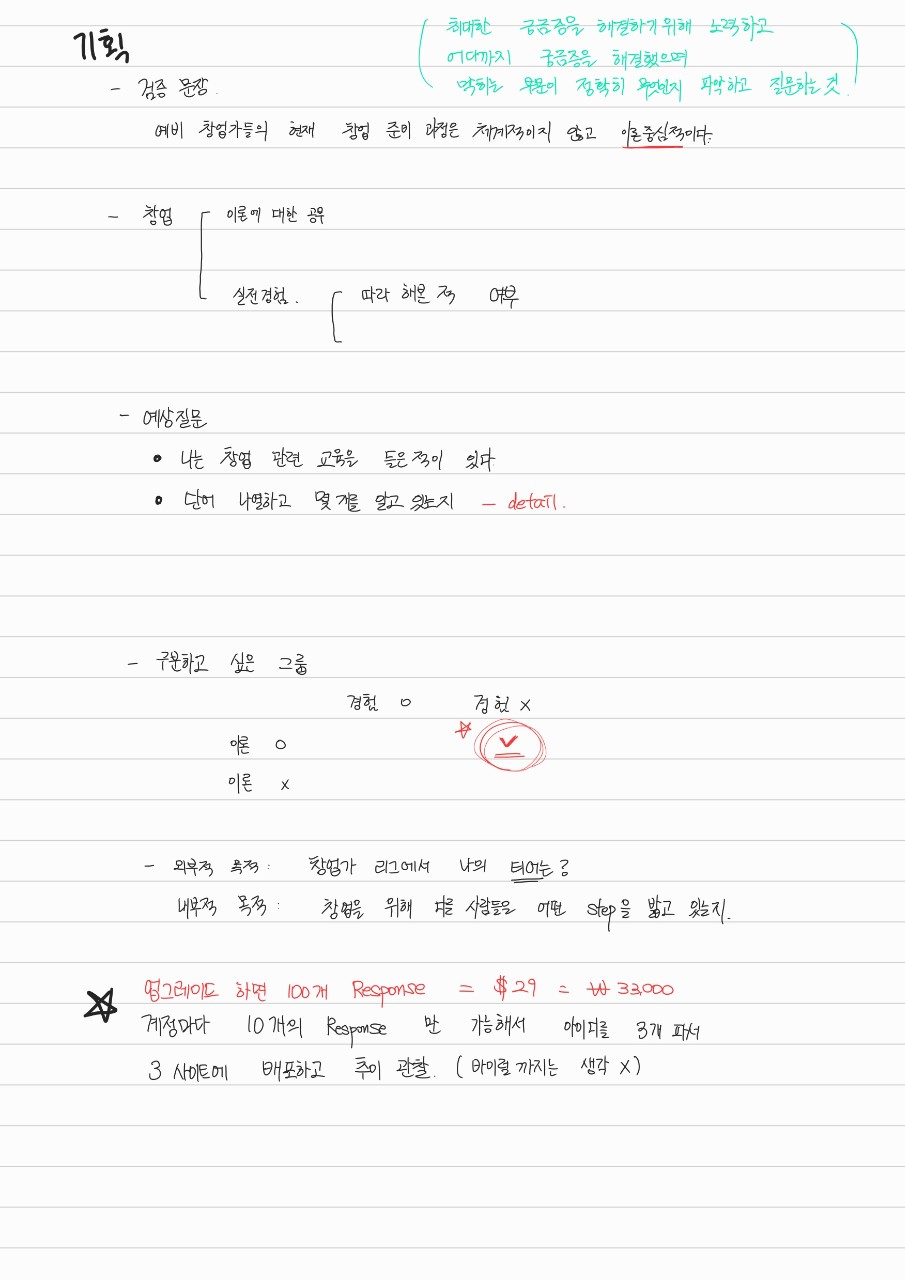 기획
( 최대한 궁금증을 해결하기 위해 노력하고
어디까지 궁금증을 해결했으며
막히는 부분이 정확히 무엇인지 파악하고 질문하는 것. )
- 검증 문장.
예비 창업가들의 현재 창업 준비 과정은 체계적이지 않고 이론중심적이다.
- 창업
이론에 대한 공부
실전경험. 따라 해본 적 여부
- 예상질문
• 나는 창업 관련 교육을 들은 적이 있다
• 단어 나열하고 몇 개를 알고 있는지 - detail.
- 구분하고 싶은 그룹
경험 O 경험 X
이론 O
이론 X
- 외부적 목적 : 창업가 리그에서 나의 티어는?
내부적 목적 : 창업을 위해 다른 사람들은 어떤 step을 밟고 있는지.
업그레이드 하면 100개 Response = $29 = ₩33,000
계정마다 10개의 Response 만 가능해서 아이디를 3개 파서
3 사이트에 배포하고 추이 관찰. (바이럴 까지는 생각 X)